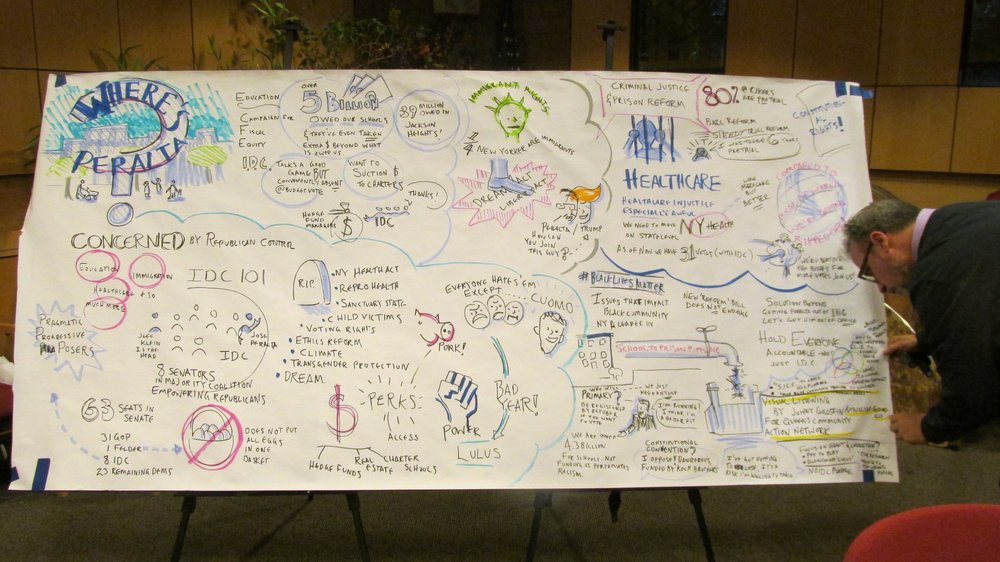 WHERE'S
PERALTA
EDUCATION
CAMPAIGN FOR
FISCAL
EQUITY
OVER
5 BILLION
OWED OUR SCHOOLS
& THEY'VE EVEN TAKEN
EXTRA $ BEYOND WHAT
IS OWED US.
39 MILLION
OWED IN
JACKSON
HEIGHTS!
IDC
TALKS A GOOD
GAME BUT
CONVENIENTLY ABSENT
@ BUDGET VOTE
WANT TO
SUCTION $
TO CHARTERS
THANKS!
HEDGE
FUND
MANAGERS
$
IDC
IMMIGRANT RIGHTS
1/4 NEW YORKER ARE IMMIGRANTS
DREAM ACT
PERALTA / TRUMP
HOW CAN
YOU JOIN
THIS GUY?
CRIMINAL JUSTICE
& PRISON REFORM
80% @ RIKERS
ARE PRETRIAL
BAIL REFORM
SPEEDY TRIAL REFORM
I WAS THERE 6 YEARS
PRETRIAL
CONSTITUTION-
AL
RIGHTS!
HEALTHCARE
HEALTHCARE INJUSTICE
ESPECIALLY AWFUL
WE NEED TO MOVE NY HEALTH
ON STATE LEVEL
AS OF NOW WE HAVE 31 VOTES (WITH IDC)
LIKE
MEDICARE
BUT
BETTER
COMPARED TO
CONCERNED BY REPUBLICAN CONTROL
EDUCATION
IMMIGRATION
HEALTHCARE & SO
MUCH MORE
PRAGMATIC
PROGRESSIVE
POSERS
IDC 101
JEFF
KLEIN
IS THE
HEAD
JOSE
PERALTA
IDC
8 SENATORS
IN MAJORITY COALITION
EMPOWERING REPUBLICANS
63 SEATS IN
SENATE
31 GOP
1 FELDER
8 IDC
23 REMAINING DEMS
DOES NOT PUT
ALL EGGS
IN ONE
BASKET
R.I.P.
• NY HEALTH ACT
• REPRO HEALTH
• SANCTUARY STATE
• CHILD VICTIMS
• VOTING RIGHTS
• ETHICS REFORM
• CLIMATE
• TRANSGENDER PROTECTION
• DREAM
$
HEDGE FUNDS
REAL
ESTATE
CHARTER
SCHOOLS
PERKS
ACCESS
PORK!
POWER
LULUS
BAD
YEAR!
EVERYONE HATES 'EM
EXCEPT
CUOMO
#BLACKLIVESMATTER
ISSUES THAT IMPACT
BLACK COMMUNITY
NY A LEADER IN
SCHOOL TO PRISON PIPELINE
NEW 'REFORM' BILL
DOES NOT
PRIMARY?
I'M RUNNING!
WE ARE OWED
4.3 BILLION
FOR SCHOOLS. NOT
FUNDING US PERPETUATES
RACISM.
CONSTITUTIONAL
CONVENTION?
I OPPOSE! DANGEROUS
FUNDED BY KOCH BROTHERS
LET'S GET HIM OUT OF OFFICE
HOLD EVERYONE
ACCOUNTABLE - NOT
JUST IDC
VISUAL LISTENING
BY JONNY GOLDSTEIN
FOR QUEENS COMMUNITY
ACTION NETWORK
NO IDC PLEDGE